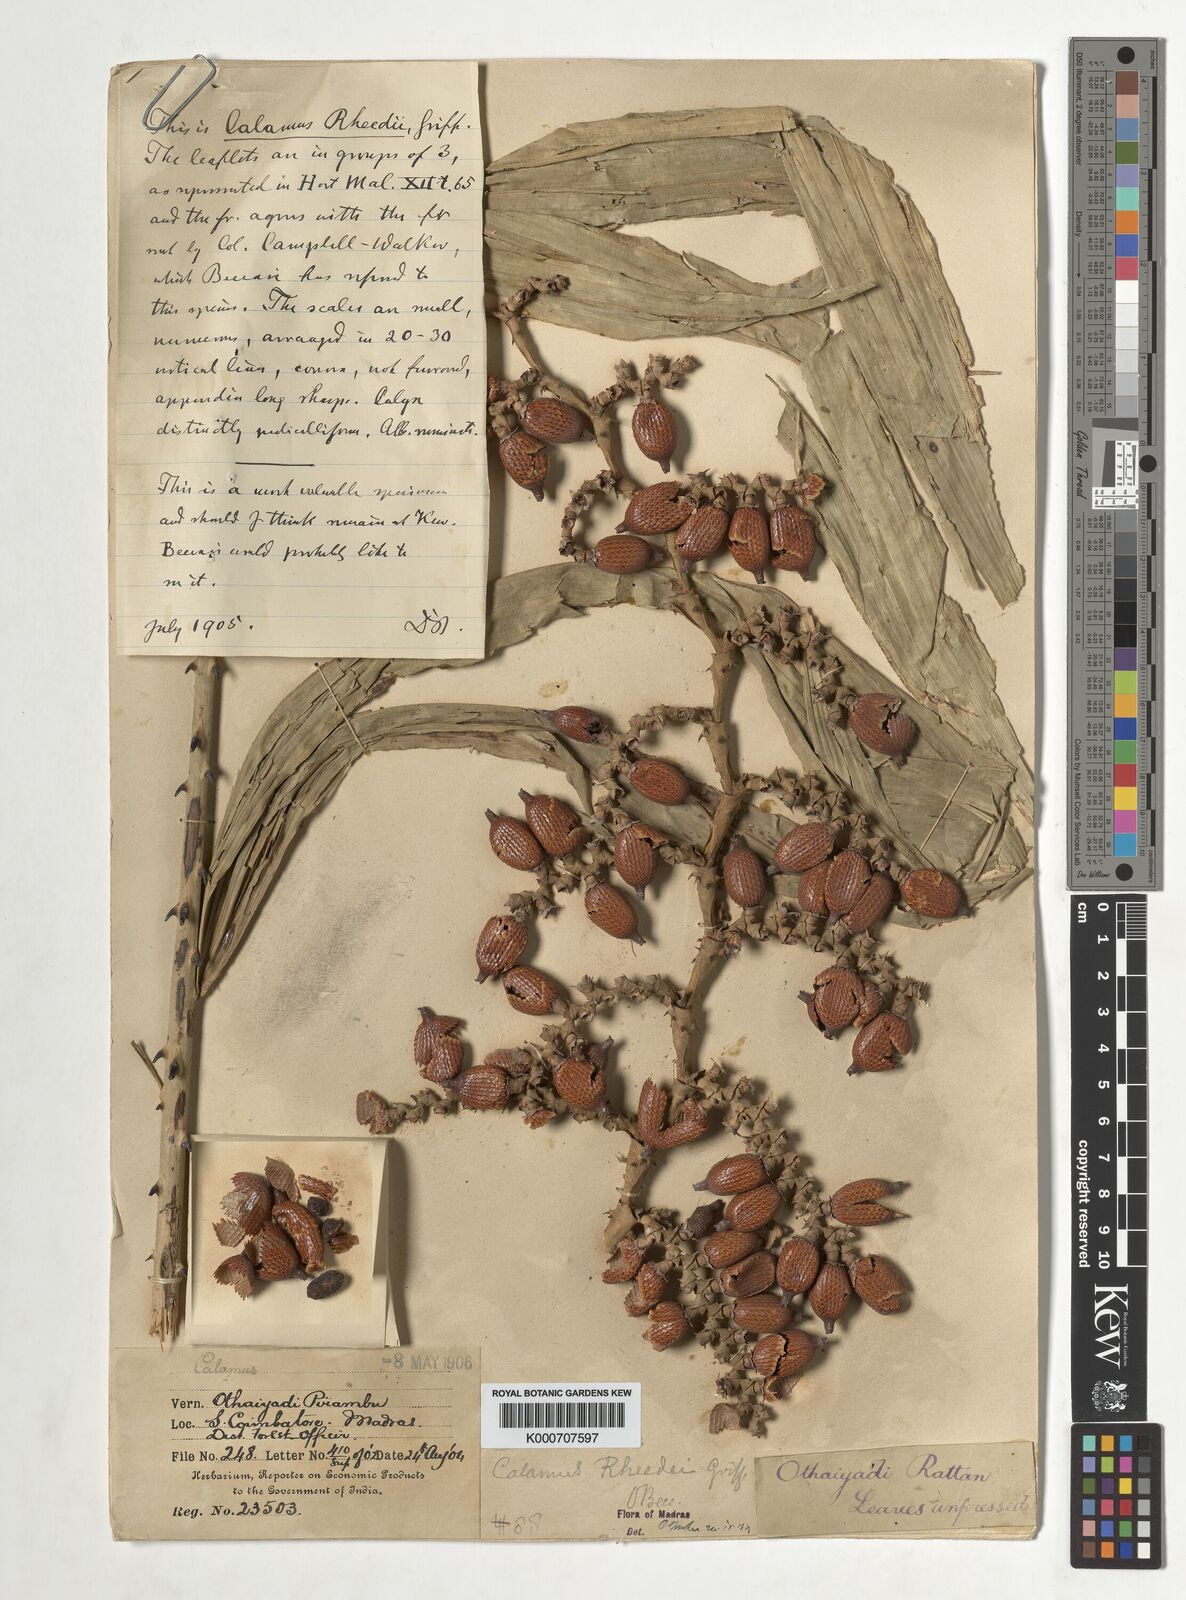 This is Calamus Rheedii, Griff.
The leaflets are in groups of 3,
as represented in Hort Mal. XII t. 65
and the fr. agrees with the fr
sent by Col. Campbell-Walker,
which Beccari has referred to
this species. The scales are small,
numerous, arranged in 20-30
vertical lines, convex, not furrowed,
appendix long sharp. Calyx
distinctly pedicelliform. Alb. ruminate.
This is a most valuable specimen
and should I think remain at Kew.
Beccari would probably like to
see it.
July 1905.
Calamus
-8 MAY 1906
Vern. Othaiyadi Pirambu
Loc. S. Coimbatore - Madras.
Dist. Forest Officer
File No. 248 Letter No. 410 Date 24th Aug
Herbarium, Reporter on Economic Products
to the Government of India.
Reg. No. 23503.
ROYAL BOTANIC GARDENS KEW
K000707597
Calamus Rheedei Griff.
O Becc.
Flora of Madras
Det.
Othaiyadi Rattan
Leaves unpressed
D50 Illuminant, 2 degree observer
Golden Thread
Colors by Munsell Color Services Lab
Don Williams
inches
centimeters
cm
0 1 2 3 4 5 6 7 8 9 10
copyright reserved
Royal Botanic Gardens
Kew